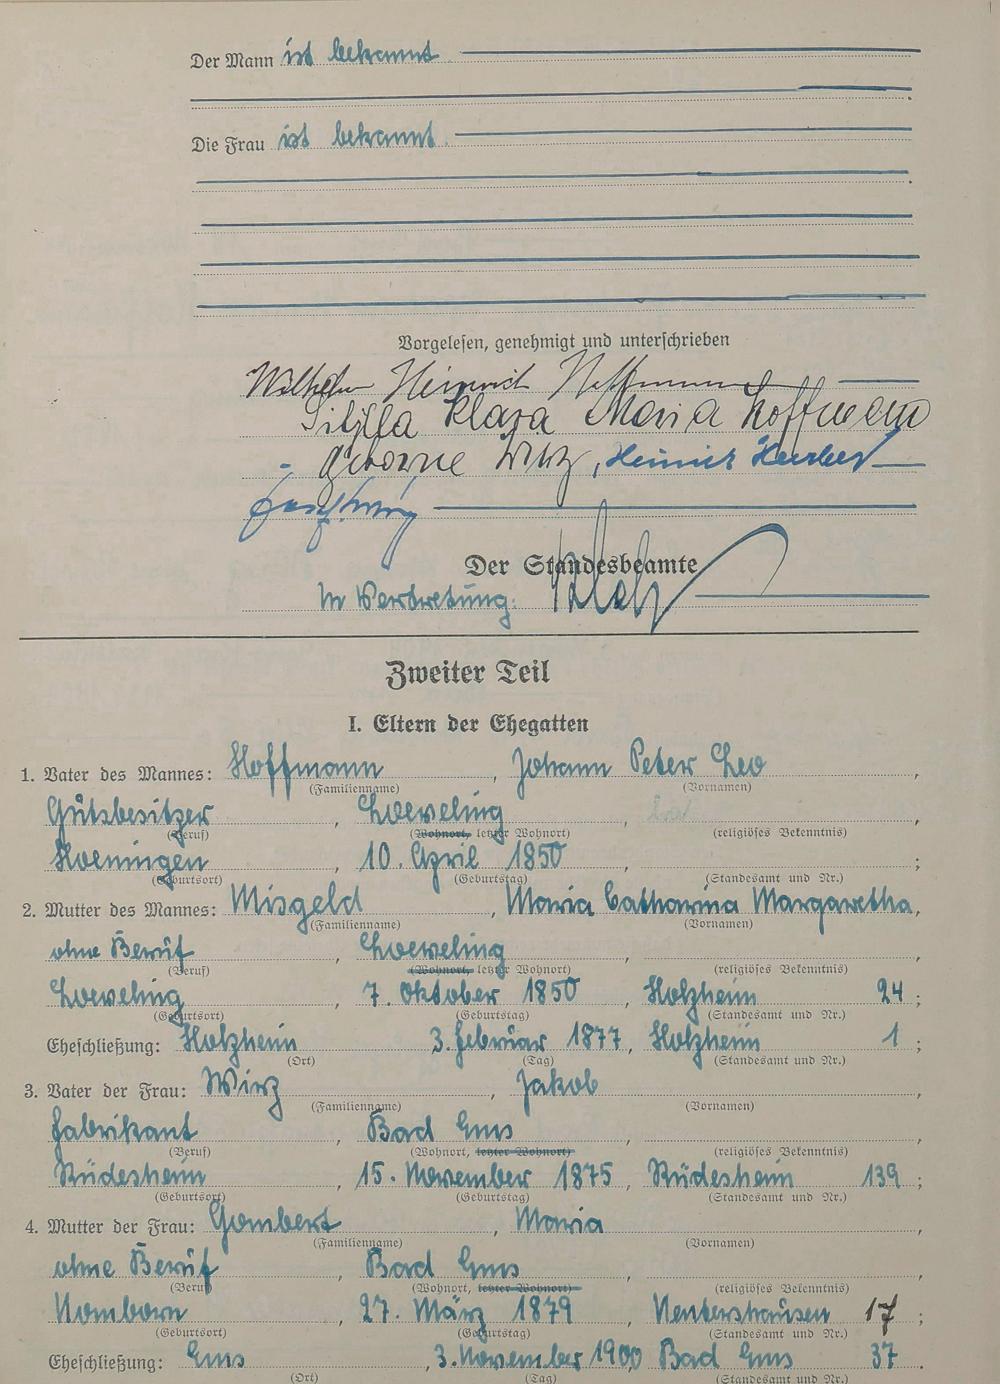 Der Mann ist bekannt
Die Frau ist bekannt
Vorgelesen, genehmigt und unterschrieben
Wilhelm Heinrich Hoffmann
Sibylla Klara Maria Hoffmann
geborne Wirz, Heinrich
Der Standesbeamte
In Vertretung:
Zweiter Teil
I. Eltern der Ehegatten
1. Vater des Mannes: Hoffmann, Johann Peter Leo,
(Familienname) (Vornamen)
Gutsbesitzer, Loeveling, ,
(Beruf) (Wohnort, letzter Wohnort) (religiöses Bekenntnis)
Hoeningen, 10. April 1850, ;
(Geburtsort) (Geburtstag) (Standesamt und Nr.)
2. Mutter des Mannes: Misgeld, Maria Catharina Margaretha,
(Familienname) (Vornamen)
ohne Beruf, Loeveling, ,
(Beruf) (Wohnort, letzter Wohnort) (religiöses Bekenntnis)
Loeveling, 7. Oktober 1850, Holzheim 24;
(Geburtsort) (Geburtstag) (Standesamt und Nr.)
Eheschließung: Holzheim 3. Februar 1877, Holzheim 1;
(Ort) (Tag) (Standesamt und Nr.)
3. Vater der Frau: Wirz, Jakob,
(Familienname) (Vornamen)
Fabrikant, Bad Ems, ,
(Beruf) (Wohnort, letzter Wohnort) (religiöses Bekenntnis)
Rüdesheim, 15. November 1875, Rüdesheim 139;
(Geburtsort) (Geburtstag) (Standesamt und Nr.)
4. Mutter der Frau: Gombert, Maria,
(Familienname) (Vornamen)
ohne Beruf, Bad Ems, ,
(Beruf) (Wohnort, letzter Wohnort) (religiöses Bekenntnis)
Nomborn, 27. März 1879, Nentershausen 17;
(Geburtsort) (Geburtstag) (Standesamt und Nr.)
Eheschließung: Ems, 3. November 1900, Bad Ems 37.
(Ort) (Tag) (Standesamt und Nr.)